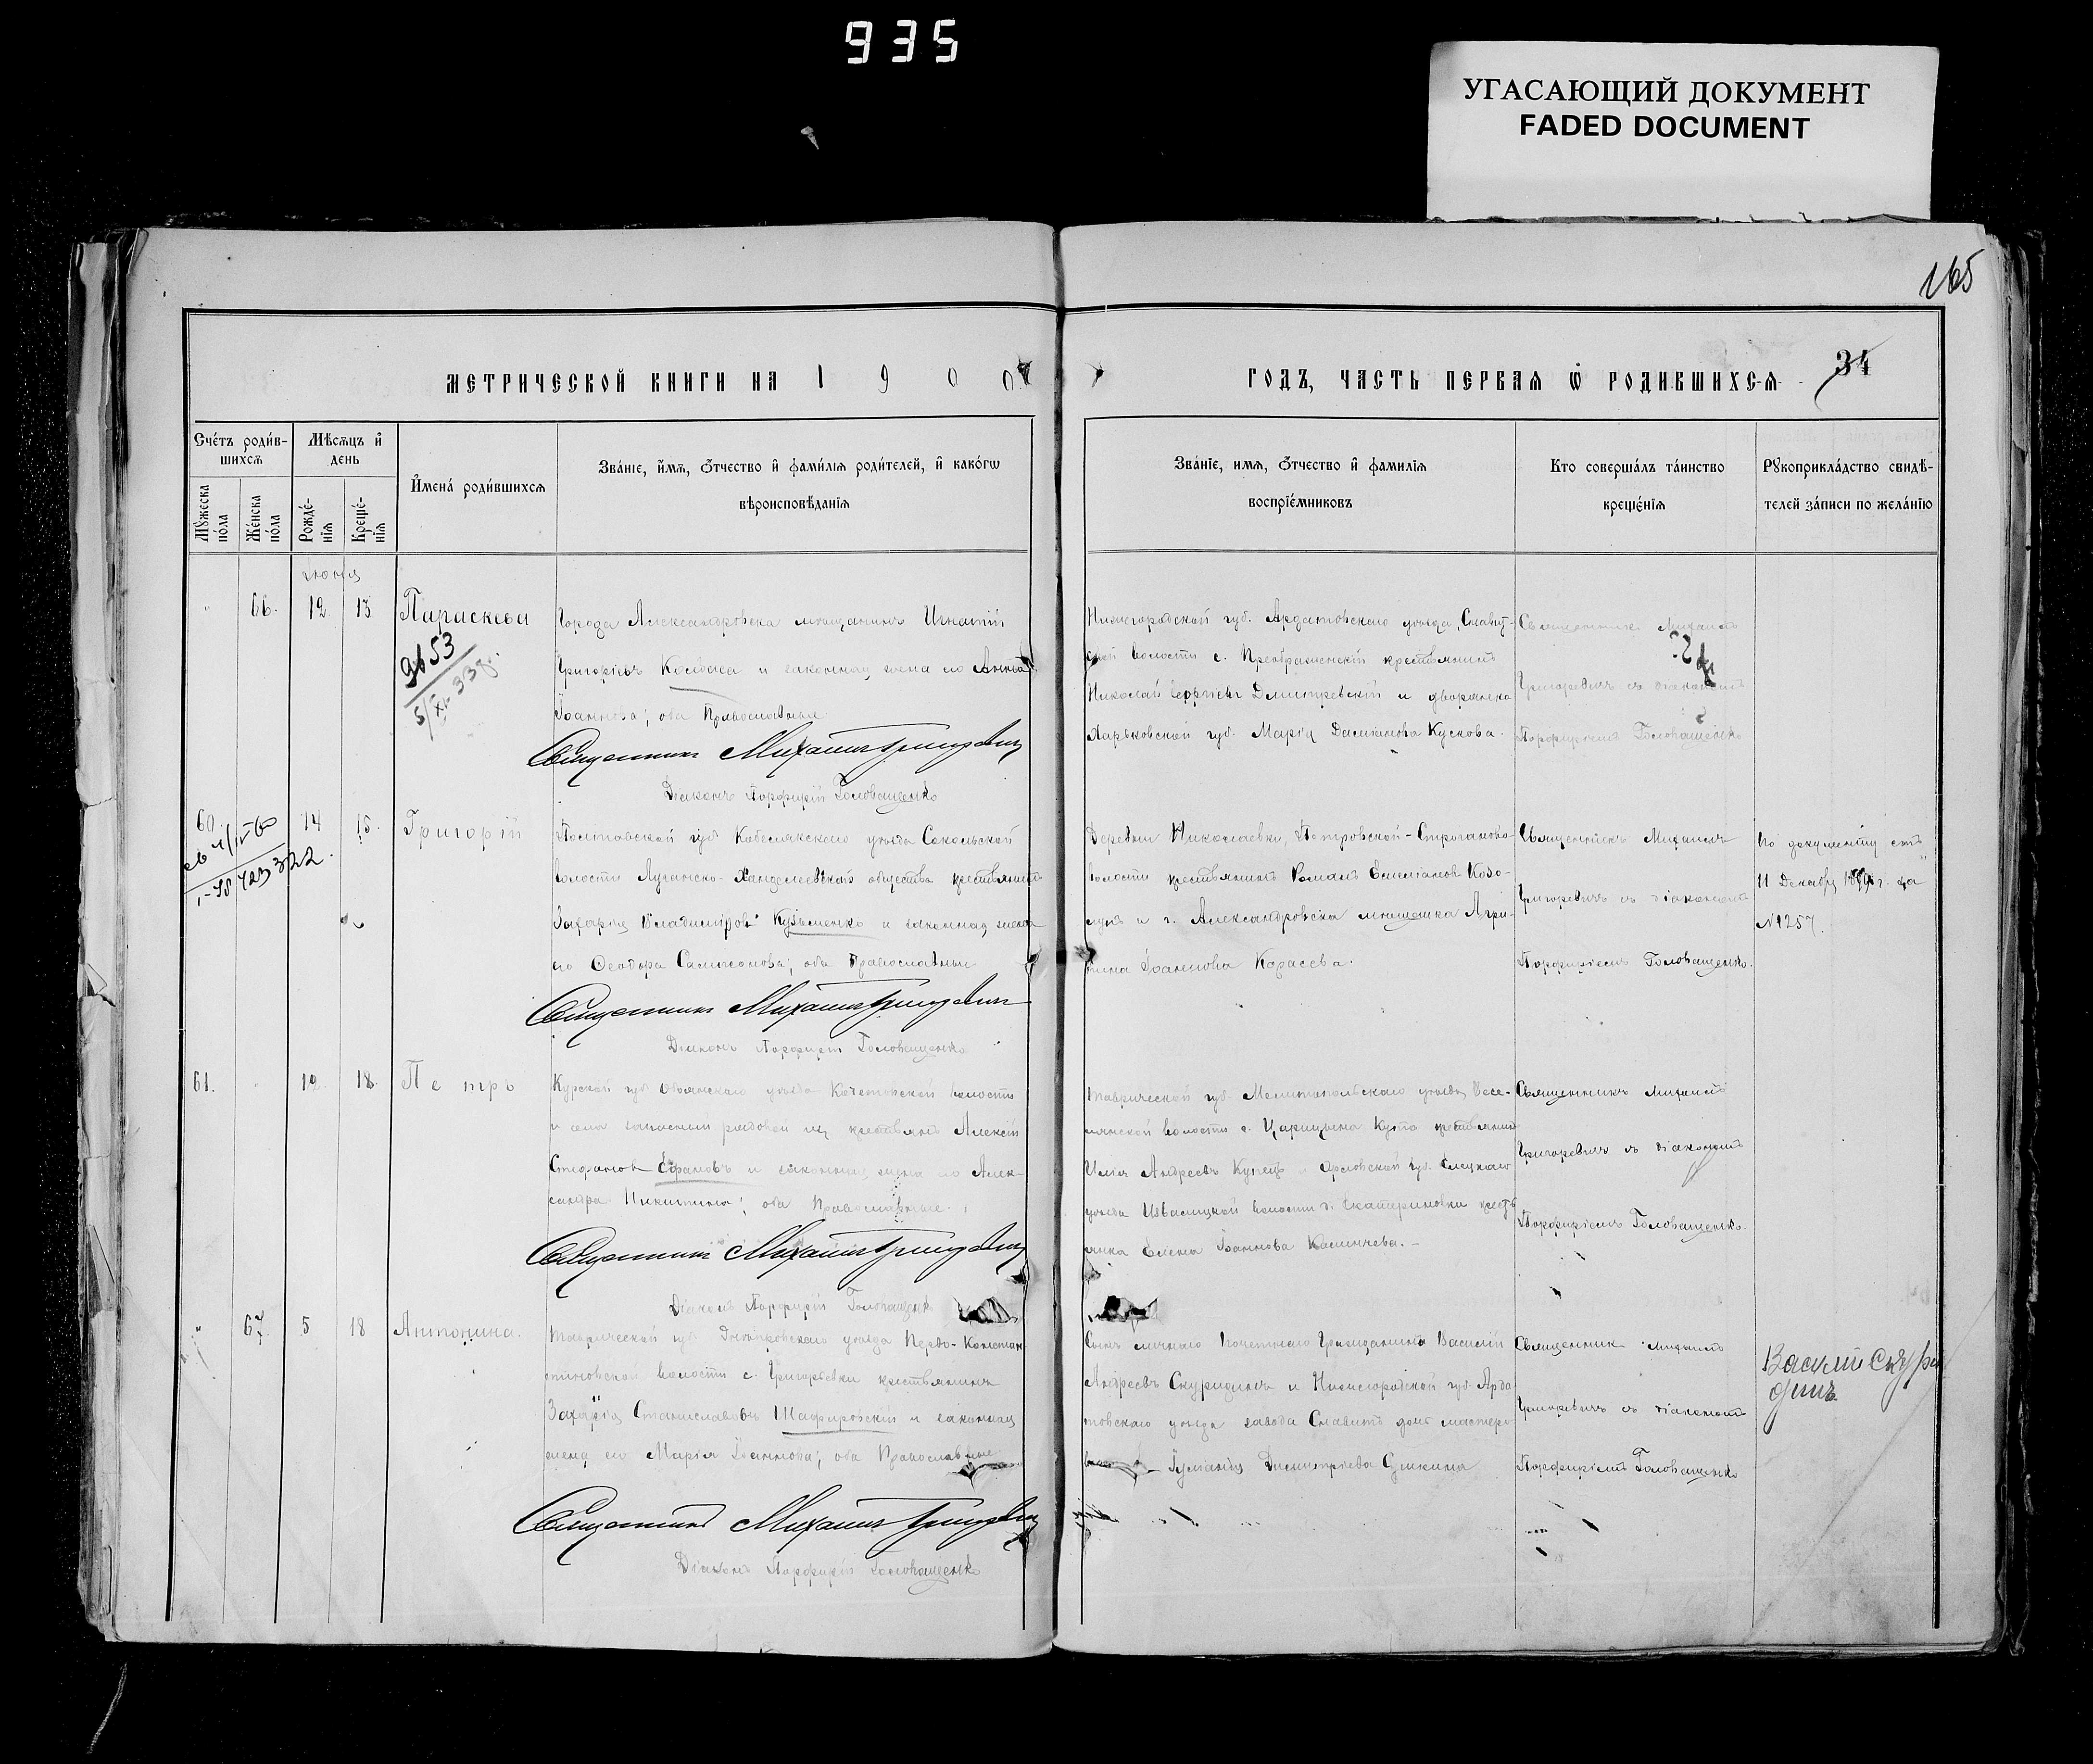 935
УГАСАЮЩИЙ ДОКУМЕНТ
FADED DOCUMENT
165
34
МЕТРИЧЕСКОЙ КНИГИ НА 1900
ГОДЪ, ЧАСТЬ ПЕРВАЯ Ѿ РОДИВШИХСЯ
Счетъ родив-
шихся
Мѣсяцъ и
день
Имена родившихся
Званіе, имя, отчество и фамилія родителей, и какогѡ
вѣроисповѣданія
Мꙋжеска
пола
Женска
пола
Рожде-
нія
Креще-
нія
Званіе, имя, отчество и фамилія
воспріемниковъ
Кто совершалъ таинство
крещенія
Рꙋкоприкладство свидѣ-
телей записи по желанію
іюня
66. 12 13 Параскева
Города Александровска мѣщанинъ Игнатій
Григорьевъ и законная жена его Анна
Іоаннова; оба Православные
Священникъ Михаилъ Григоревичъ
Діаконъ Порфирій Головащенко
Нижегородской губ. Ардатовскаго уѣзда,
волости с. крестьянинъ
Николай Георгіевъ Дмитревскій и дворянка
Харьковской губ. Марія Даміанова Кускова.
Священникъ Михаилъ
Григоревичъ съ діакономъ
Порфиріемъ Головащенко
9653
60. 14 15. Григорій
Полтавской губ. Кобелякскаго уѣзда Сокольской
волости общества крестьянинъ
Захарія Владиміровъ Кузьменко и законная жена
его Ѳеодора Сампсонова; оба Православные
Священникъ Михаилъ Григоревичъ
Діаконъ Порфирій Головащенко
Деревни Николаевки, Петровской-Строганово-
волости крестьянинъ Романъ Емеліановъ Козо-
и г. Александровска мѣщанка Агри-
пина Іоаннова Карасева.
Священникъ Михаилъ
Григоревичъ съ діакономъ
Порфиріемъ Головащенко.
По документу отъ
11 Декабря за
№1257.
61. 12 18. Петръ
Курской губ. Обоянскаго уѣзда Кочетовской волости
и села запасный рядовой изъ крестьянъ Алексій
Стефановъ Ефановъ и законная жена его Алек-
сандра Никитина; оба Православные.
Священникъ Михаилъ Григоревичъ
Діаконъ Порфирій Головащенко
Таврической губ. Мелитопольскаго уѣзда Весе-
лянской волости с. Царицына Кута крестьянинъ
Илія Андреевъ Купецъ и Орловской губ. Елецкаго
уѣзда волости д. Екатериновки кресть-
янка Елена Іоаннова Калинчева.
Священникъ Михаилъ
Григоревичъ съ діакономъ
Порфиріемъ Головащенко.
67. 5 18 Антонина.
Таврической губ. Днѣпровскаго уѣзда Перво-Констан-
тиновской волости с. Григорьевки крестьянинъ
Захарія Станиславовъ Шафировскій и законная
жена его Марія Іоаннова; оба Православные
Священникъ Михаилъ Григоревичъ
Діаконъ Порфирій Головащенко
Сынъ личнаго Почетнаго Гражданина Василій
Андреевъ Скуридинъ и Нижегородской губ. Арда-
товскаго уѣзда завода дочь мастеро-
Іуліанія Димитріева
Священникъ Михаилъ
Григоревичъ съ діакономъ
Порфиріемъ Головащенко
Василій Скури
динъ